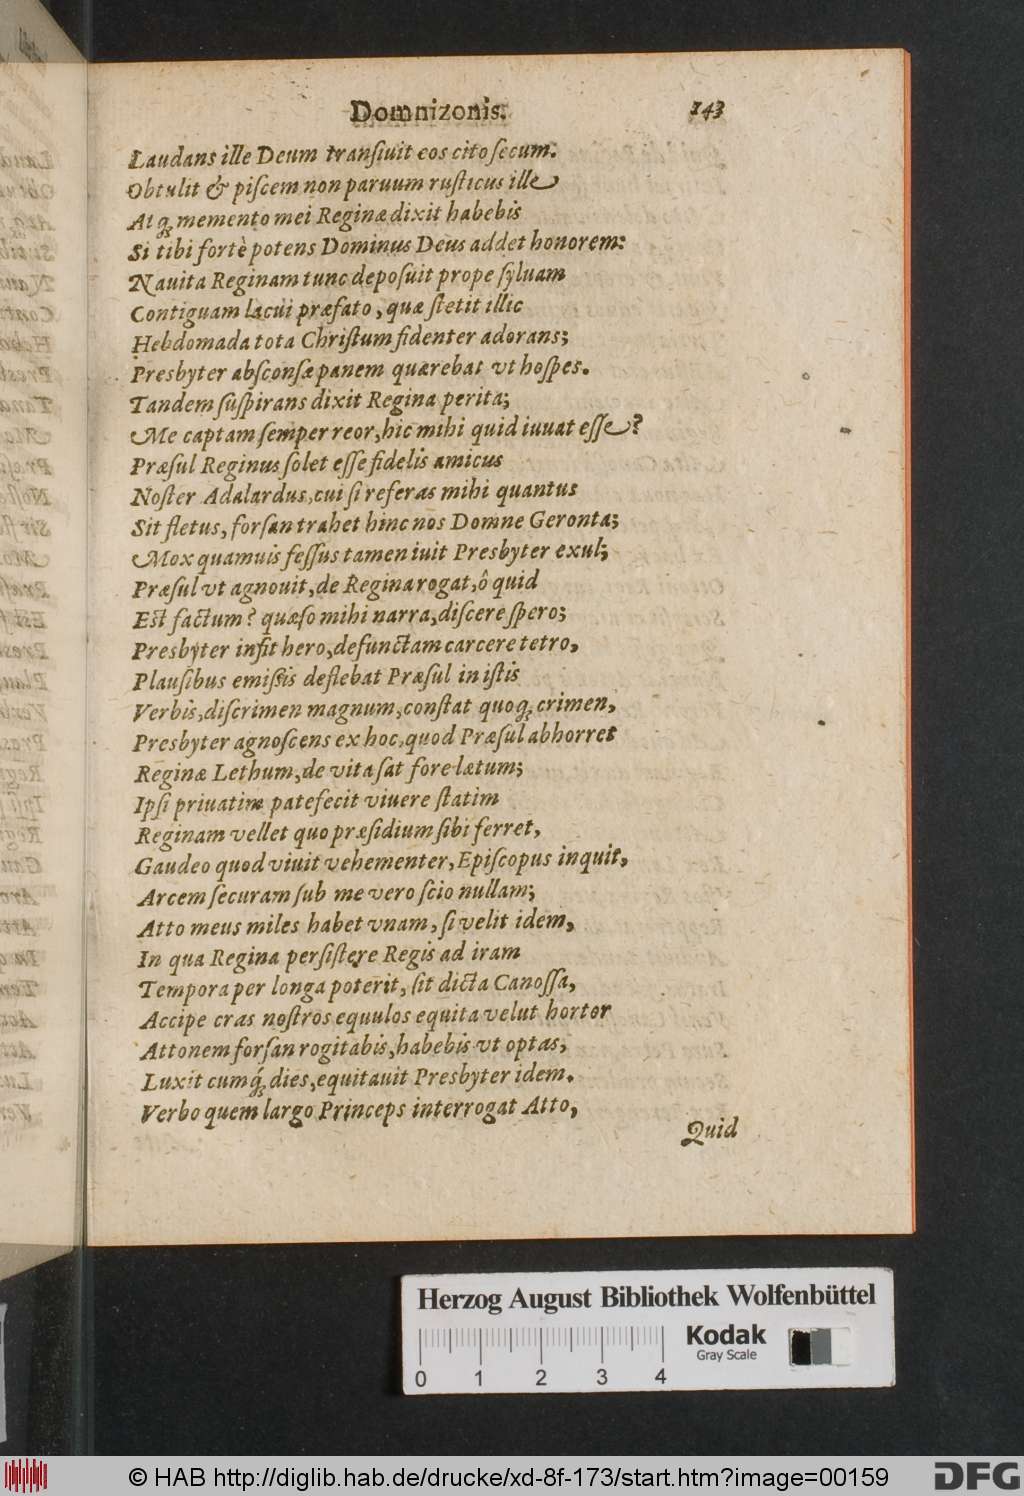 Domnizonis. 143
Laudans ille Deum transiuit eos cito secum.
Obtulit & piscem non paruum rusticus ille
Atq; memento mei Reginæ dixit habebis
Si tibi fortè potens Dominus Deus addet honorem:
Nauita Reginam tunc deposuit prope syluam
Contiguam lacui præfato, quæ stetit illic
Hebdomada tota Christum fidenter adorans;
Presbyter absconsæ panem quærebat vt hospes.
Tandem suspirans dixit Regina perita;
Me captam semper reor, hic mihi quid iuuat esse?
Præsul Reginus solet esse fidelis amicus
Noster Adalardus, cui si referas mihi quantus
Sit fletus, forsan trahet hinc nos Domne Geronta;
Mox quamuis fessus tamen iuit Presbyter exul;
Præsul vt agnouit, de Regina rogat, ô quid
Est factum? quæso mihi narra, discere spero;
Presbyter infit hero, defunctam carcere tetro,
Plausibus emissis deflebat Præsul in istis
Verbis, discrimen magnum, constat quoq; crimen,
Presbyter agnoscens ex hoc, quod Præsul abhorret
Reginæ Lethum, de vita sat fore lætum;
Ipsi priuatim patefecit viuere statim
Reginam vellet quo præsidium sibi ferret,
Gaudeo quod viuit vehementer, Episcopus inquit,
Arcem securam sub me vero scio nullam;
Atto meus miles habet vnam, si velit idem,
In qua Regina persistere Regis ad iram
Tempora per longa poterit, sit dicta Canossa,
Accipe cras nostros equulos equita velut hortor
Attonem forsan rogitabis, habebis vt optas,
Luxit cumq́; dies, equitauit Presbyter idem.
Verbo quem largo Princeps interrogat Atto,
Quid
Herzog August Bibliothek Wolfenbüttel
Kodak
Gray Scale
0 1 2 3 4
© HAB http://diglib.hab.de/drucke/xd-8f-173/start.htm?image=00159
DFG